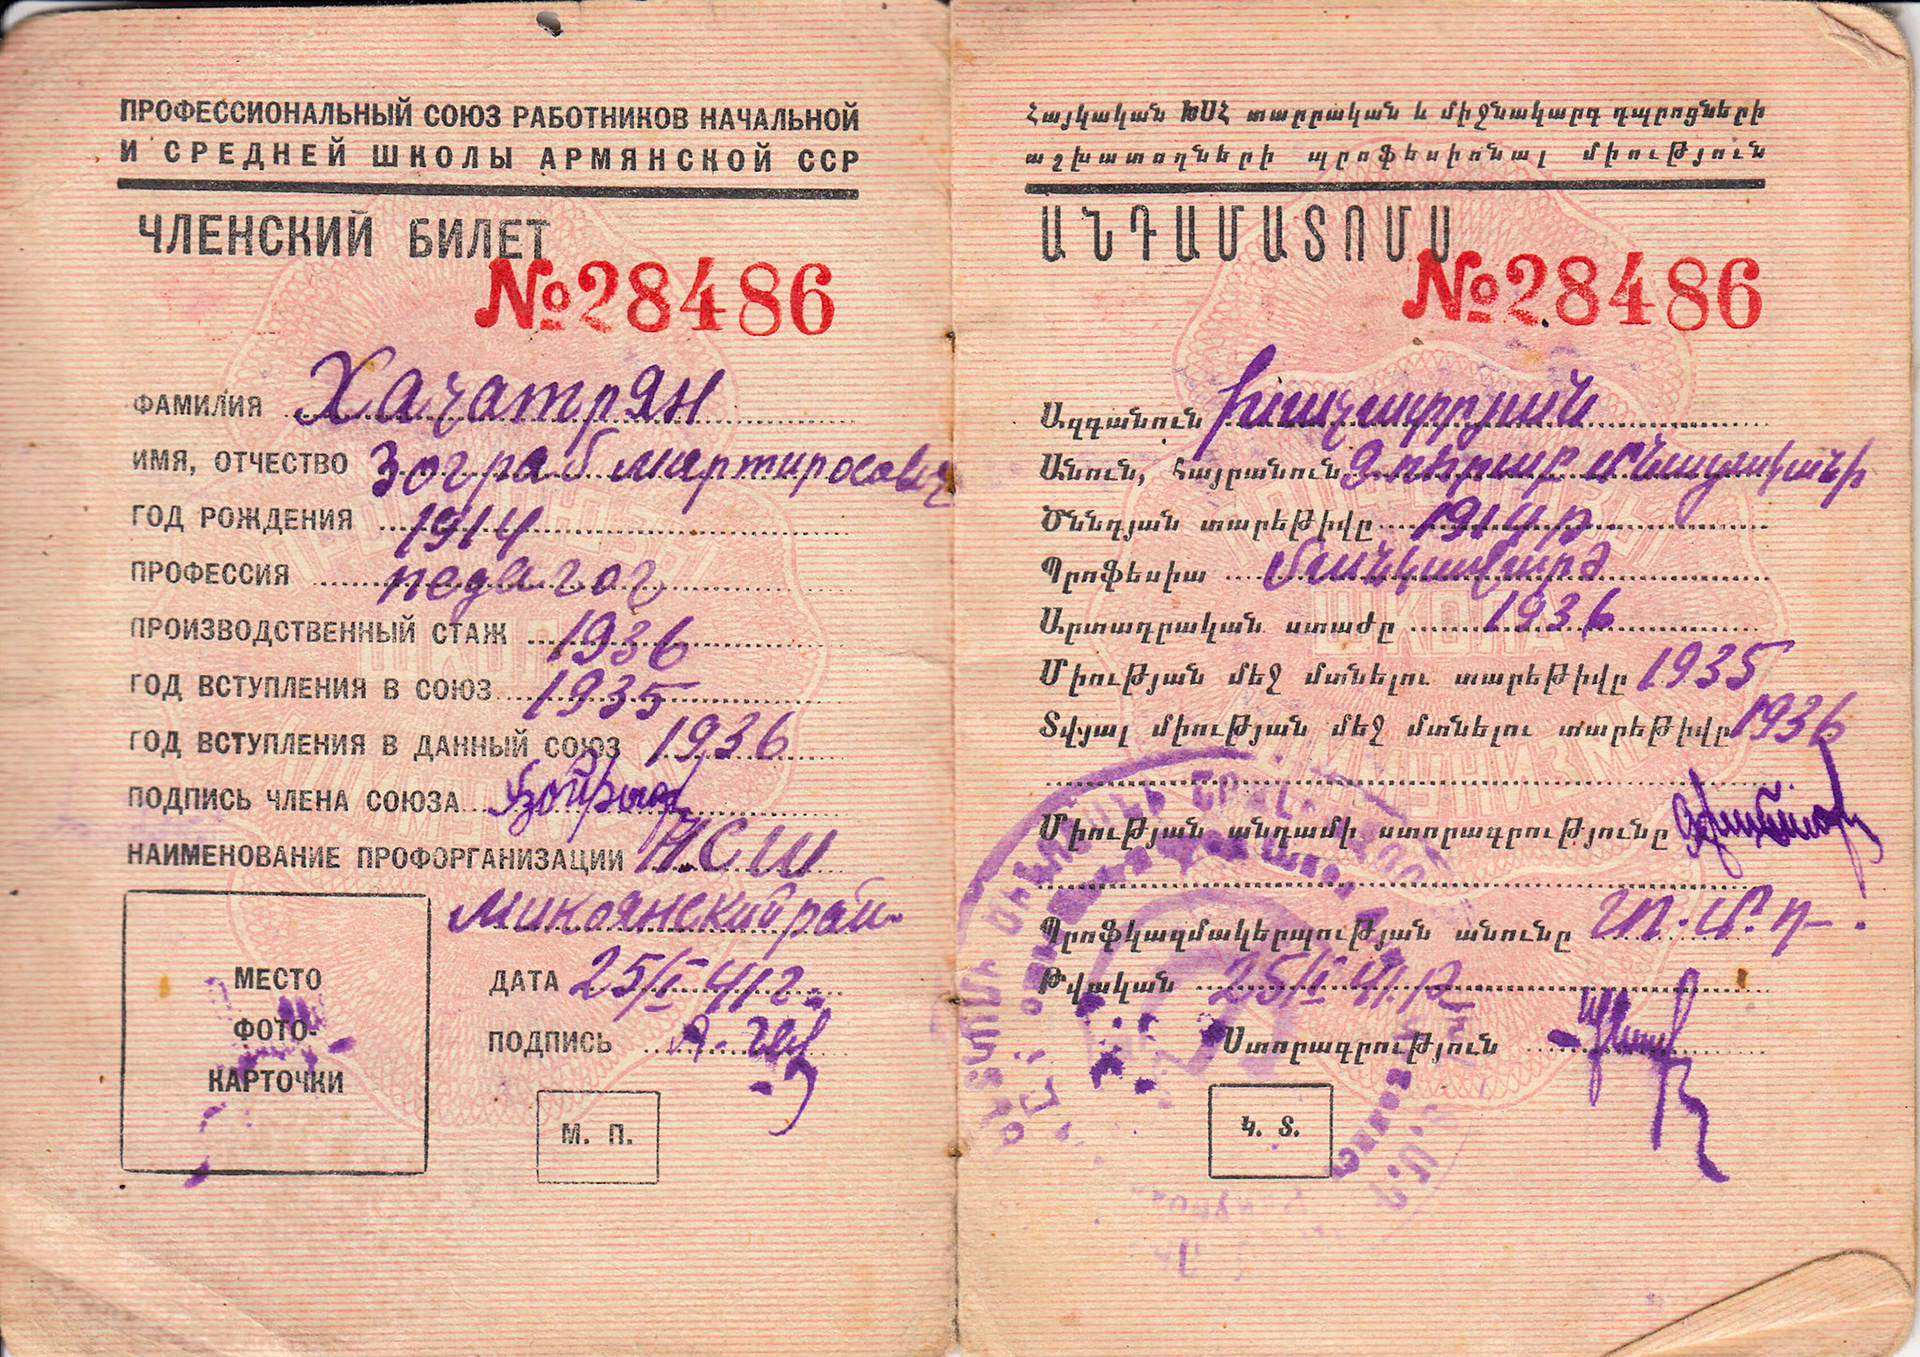 ПРОФЕССИОНАЛЬНЫЙ СОЮЗ РАБОТНИКОВ НАЧАЛЬНОЙ
И СРЕДНЕЙ ШКОЛЫ АРМЯНСКОЙ ССР
ЧЛЕНСКИЙ БИЛЕТ
№28486
ФАМИЛИЯ Хачатрян
ИМЯ, ОТЧЕСТВО Зограб Мартиросович
ГОД РОЖДЕНИЯ 1914
ПРОФЕССИЯ педагог
ПРОИЗВОДСТВЕННЫЙ СТАЖ 1936
ГОД ВСТУПЛЕНИЯ В СОЮЗ 1935
ГОД ВСТУПЛЕНИЯ В ДАННЫЙ СОЮЗ 1936
ПОДПИСЬ ЧЛЕНА СОЮЗА
НАИМЕНОВАНИЕ ПРОФОРГАНИЗАЦИИ Н.С.Ш
Микоянский рай
МЕСТО
ФОТО-
КАРТОЧКИ
ДАТА 25/I 41 г.
ПОДПИСЬ
М. П.
Հայկական ԽՍՀ տարրական և միջնակարգ դպրոցների
աշխատողների պրոֆեսիոնալ միություն
ԱՆԴԱՄԱՏՈՄՍ
№28486
Ազգանուն Խաչատրյան
Անուն, հայրանուն Զոհրաբ
Ծննդյան տարեթիվը 1914 թ
Պրոֆեսիա մանկավարժ
Արտադրական ստաժը 1936
Միության մեջ մտնելու տարեթիվը 1935
Տվյալ միության մեջ մտնելու տարեթիվը 1936
Միության անդամի ստորագրությունը
Պրոֆկազմակերպության անունը
Թվական 25/I 41.թ
Ստորագրություն
Կ. Տ.